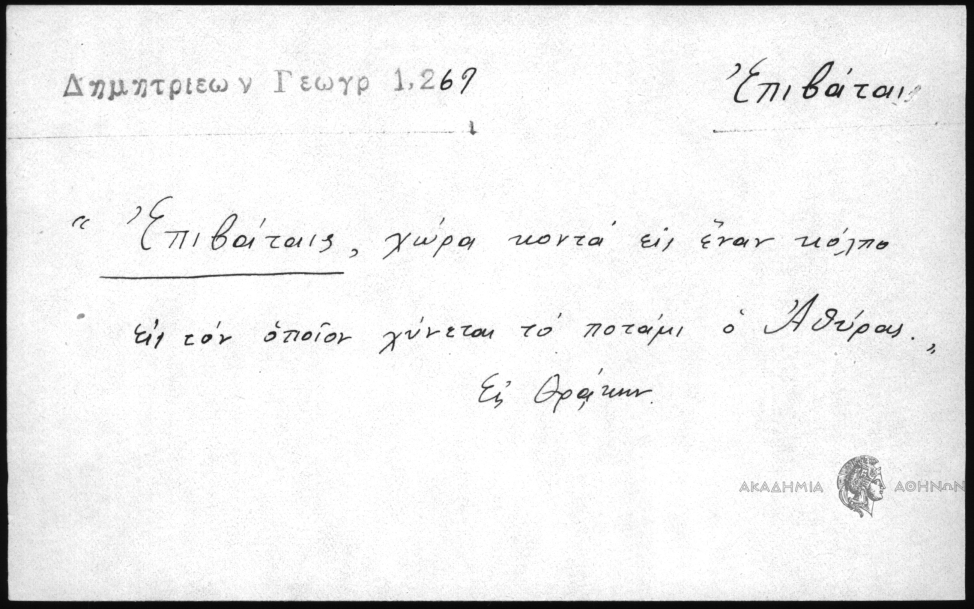 Δημητριεων Γεωγρ 1,269
Ἐπιβάταις
" Ἐπιβάταις, χώρα κοντά εἰς ἕναν κόλπο
εἰς τόν ὁποῖον χύνεται τό ποτάμι ὁ Ἀθύρας. „
Εἰς Θράκην.
ΑΚΑΔΗΜΙΑ ΑΘΗΝΩΝ